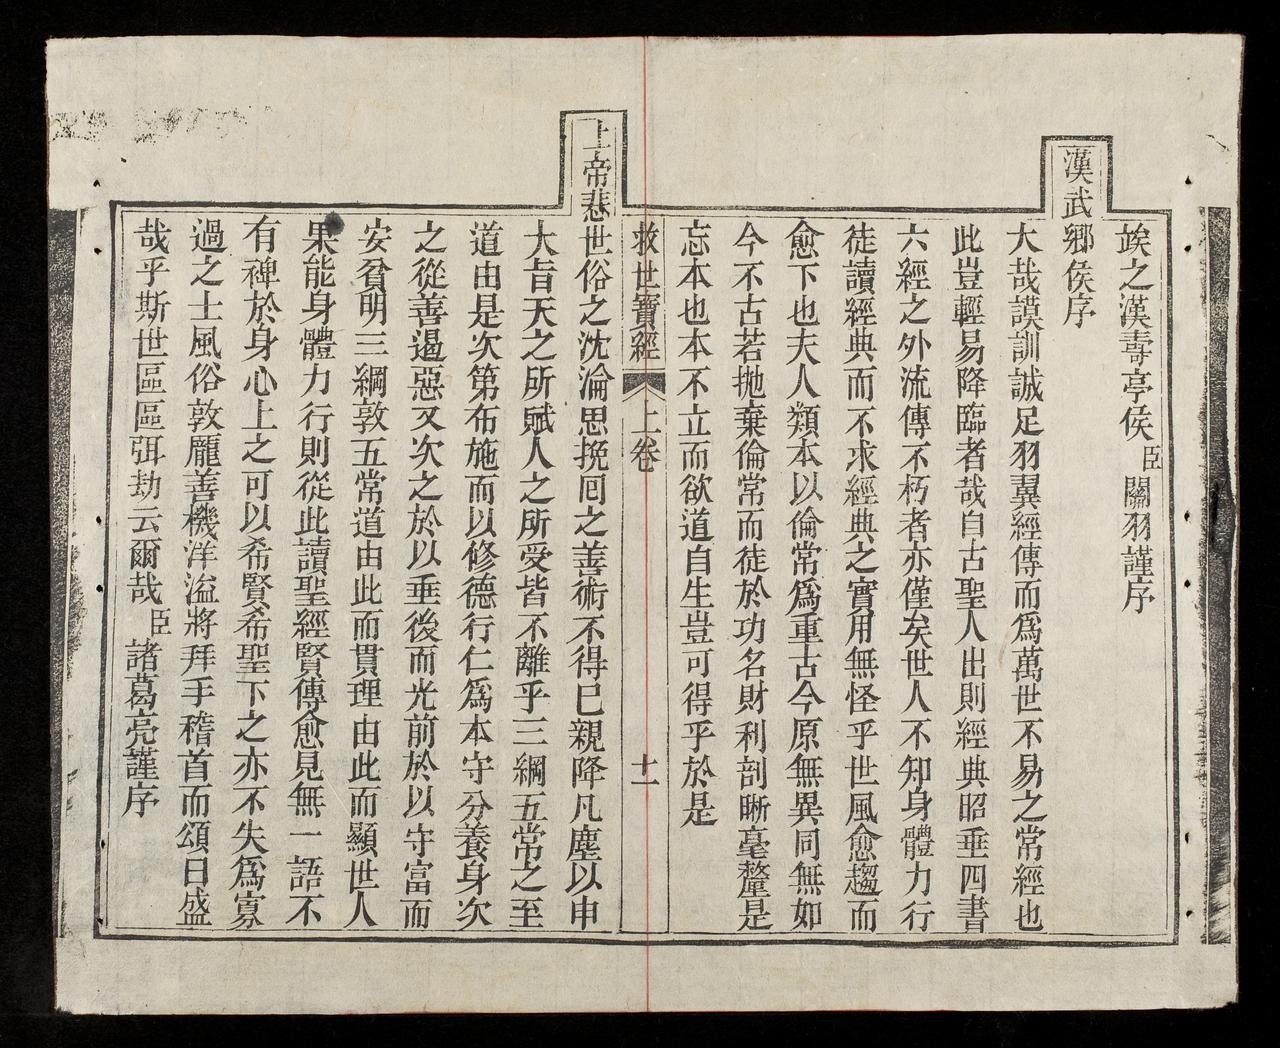 竢之漢壽亭侯臣關羽謹序
漢武鄉侯序
大哉謨訓誠足羽翼經傳而爲萬世不易之常經也
此豈輕易降臨者哉自古聖人出則經典昭垂四書
六經之外流傳不朽者亦僅矣世人不知身體力行
徒讀經典而不求經典之實用無怪乎世風愈趨而
愈下也夫人類本以倫常爲重古今原無異同無如
今不古若拋棄倫常而徒於功名財利剖晰毫釐是
忘本也本不立而欲道自生豈可得乎於是
救世寶經 上卷 十一
上帝悲世俗之沈淪思挽囘之善術不得已親降凡塵以申
大旨天之所賦人之所受皆不離乎三綱五常之至
道由是次第布施而以修德行仁爲本守分養身次
之從善遏惡又次之於以垂後而光前於以守富而
安貧明三綱敦五常道由此而貫理由此而顯世人
果能身體力行則從此讀聖經賢傳愈見無一語不
有裨於身心上之可以希賢希聖下之亦不失爲寡
過之士風俗敦龐善機洋溢將拜手稽首而頌曰盛
哉乎斯世區區弭劫云爾哉臣諸葛亮謹序